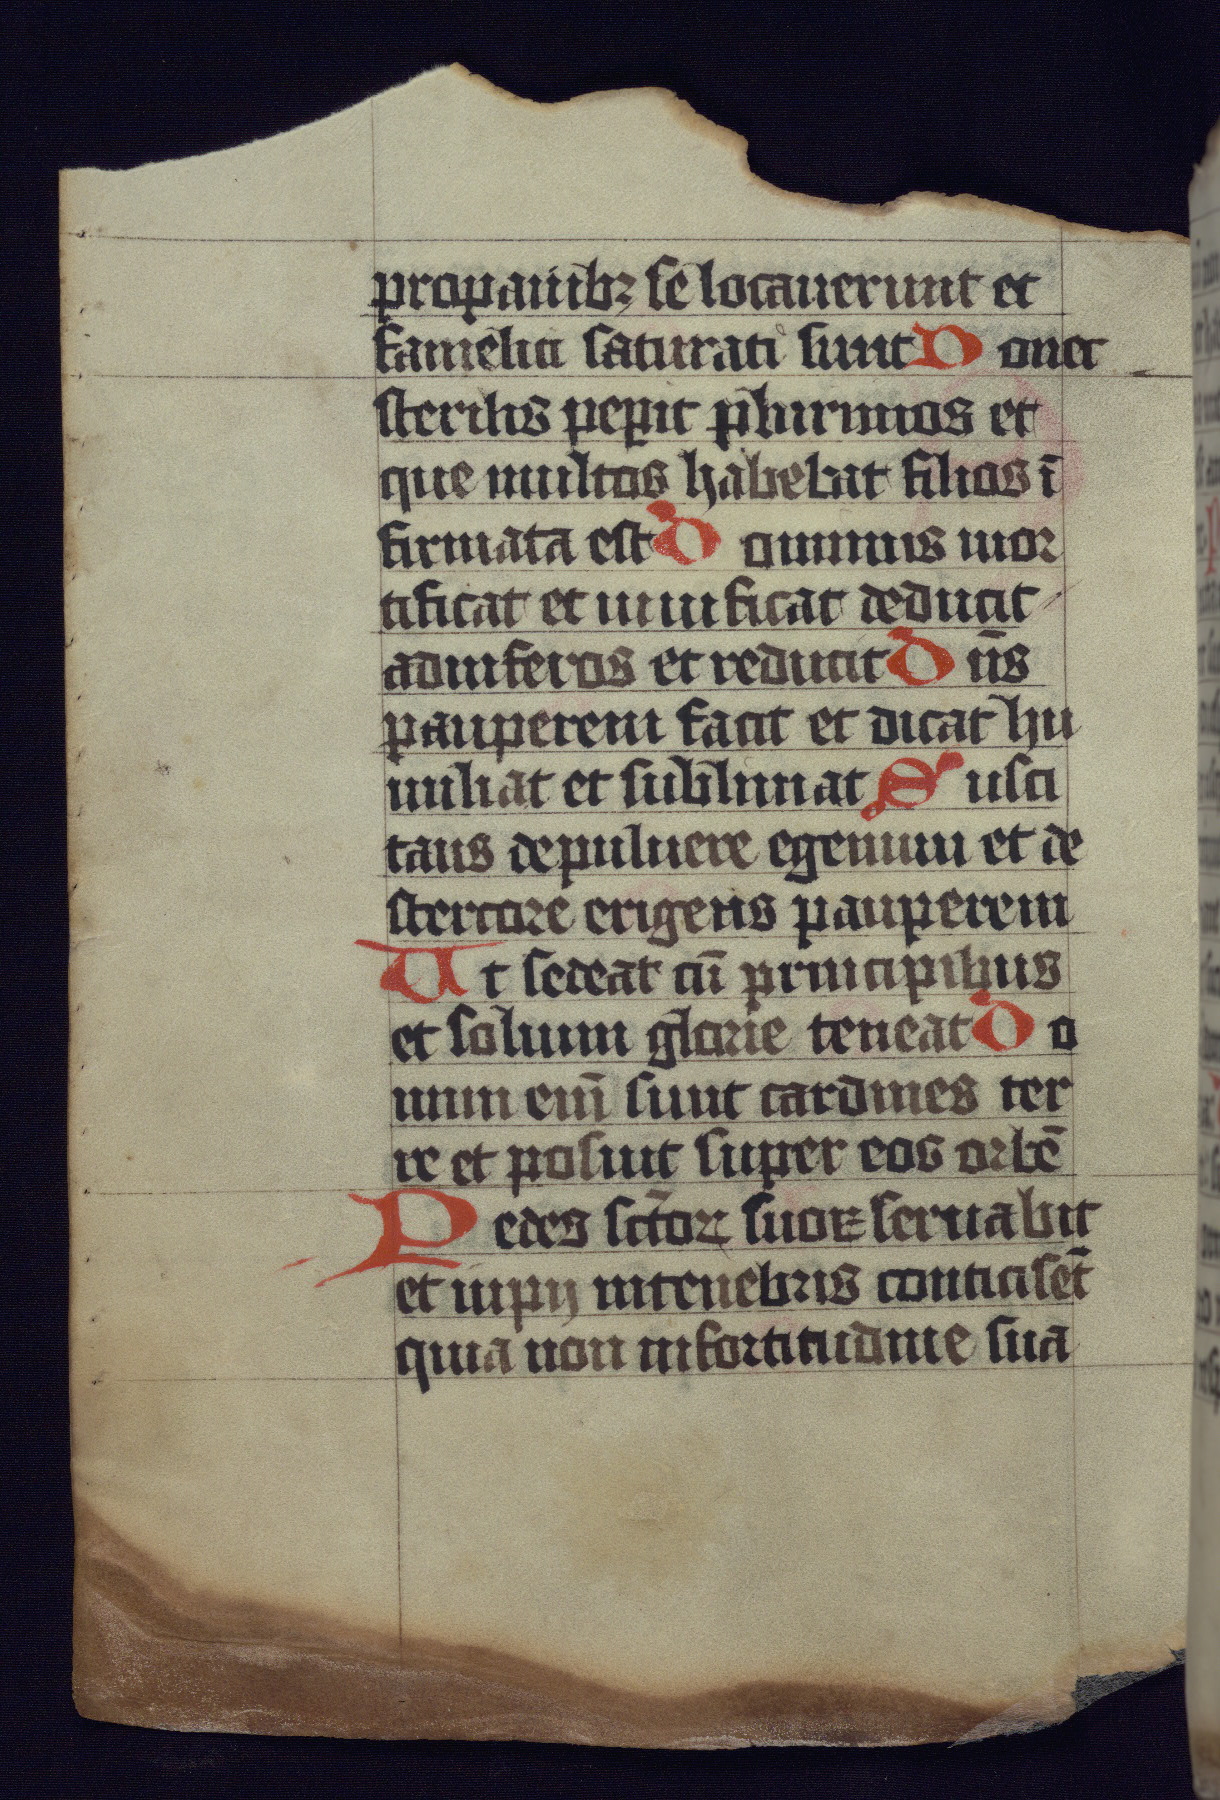 pro panibꝫ se locauerunt et
famelici saturati sunt Donec
sterilis peperit plurimos et
que multos habebat filios ī
firmata est Dominus mor
tificat et uiuificat deducit
ad inferos et reducit Dn̄s
pauperem facit et ditat hu
miliat et subleuat Susci
tans de puluere egenum et de
stercore erigens pauperem
Ut sedeat cū principibus
et solium glorie teneat Do
mini eni̅ sunt cardines ter
re et posuit super eos orbē
Pedes sc̄toꝝ suoꝝ seruabit
et impij in tenebris conticisēt
quia non in fortitudine sua